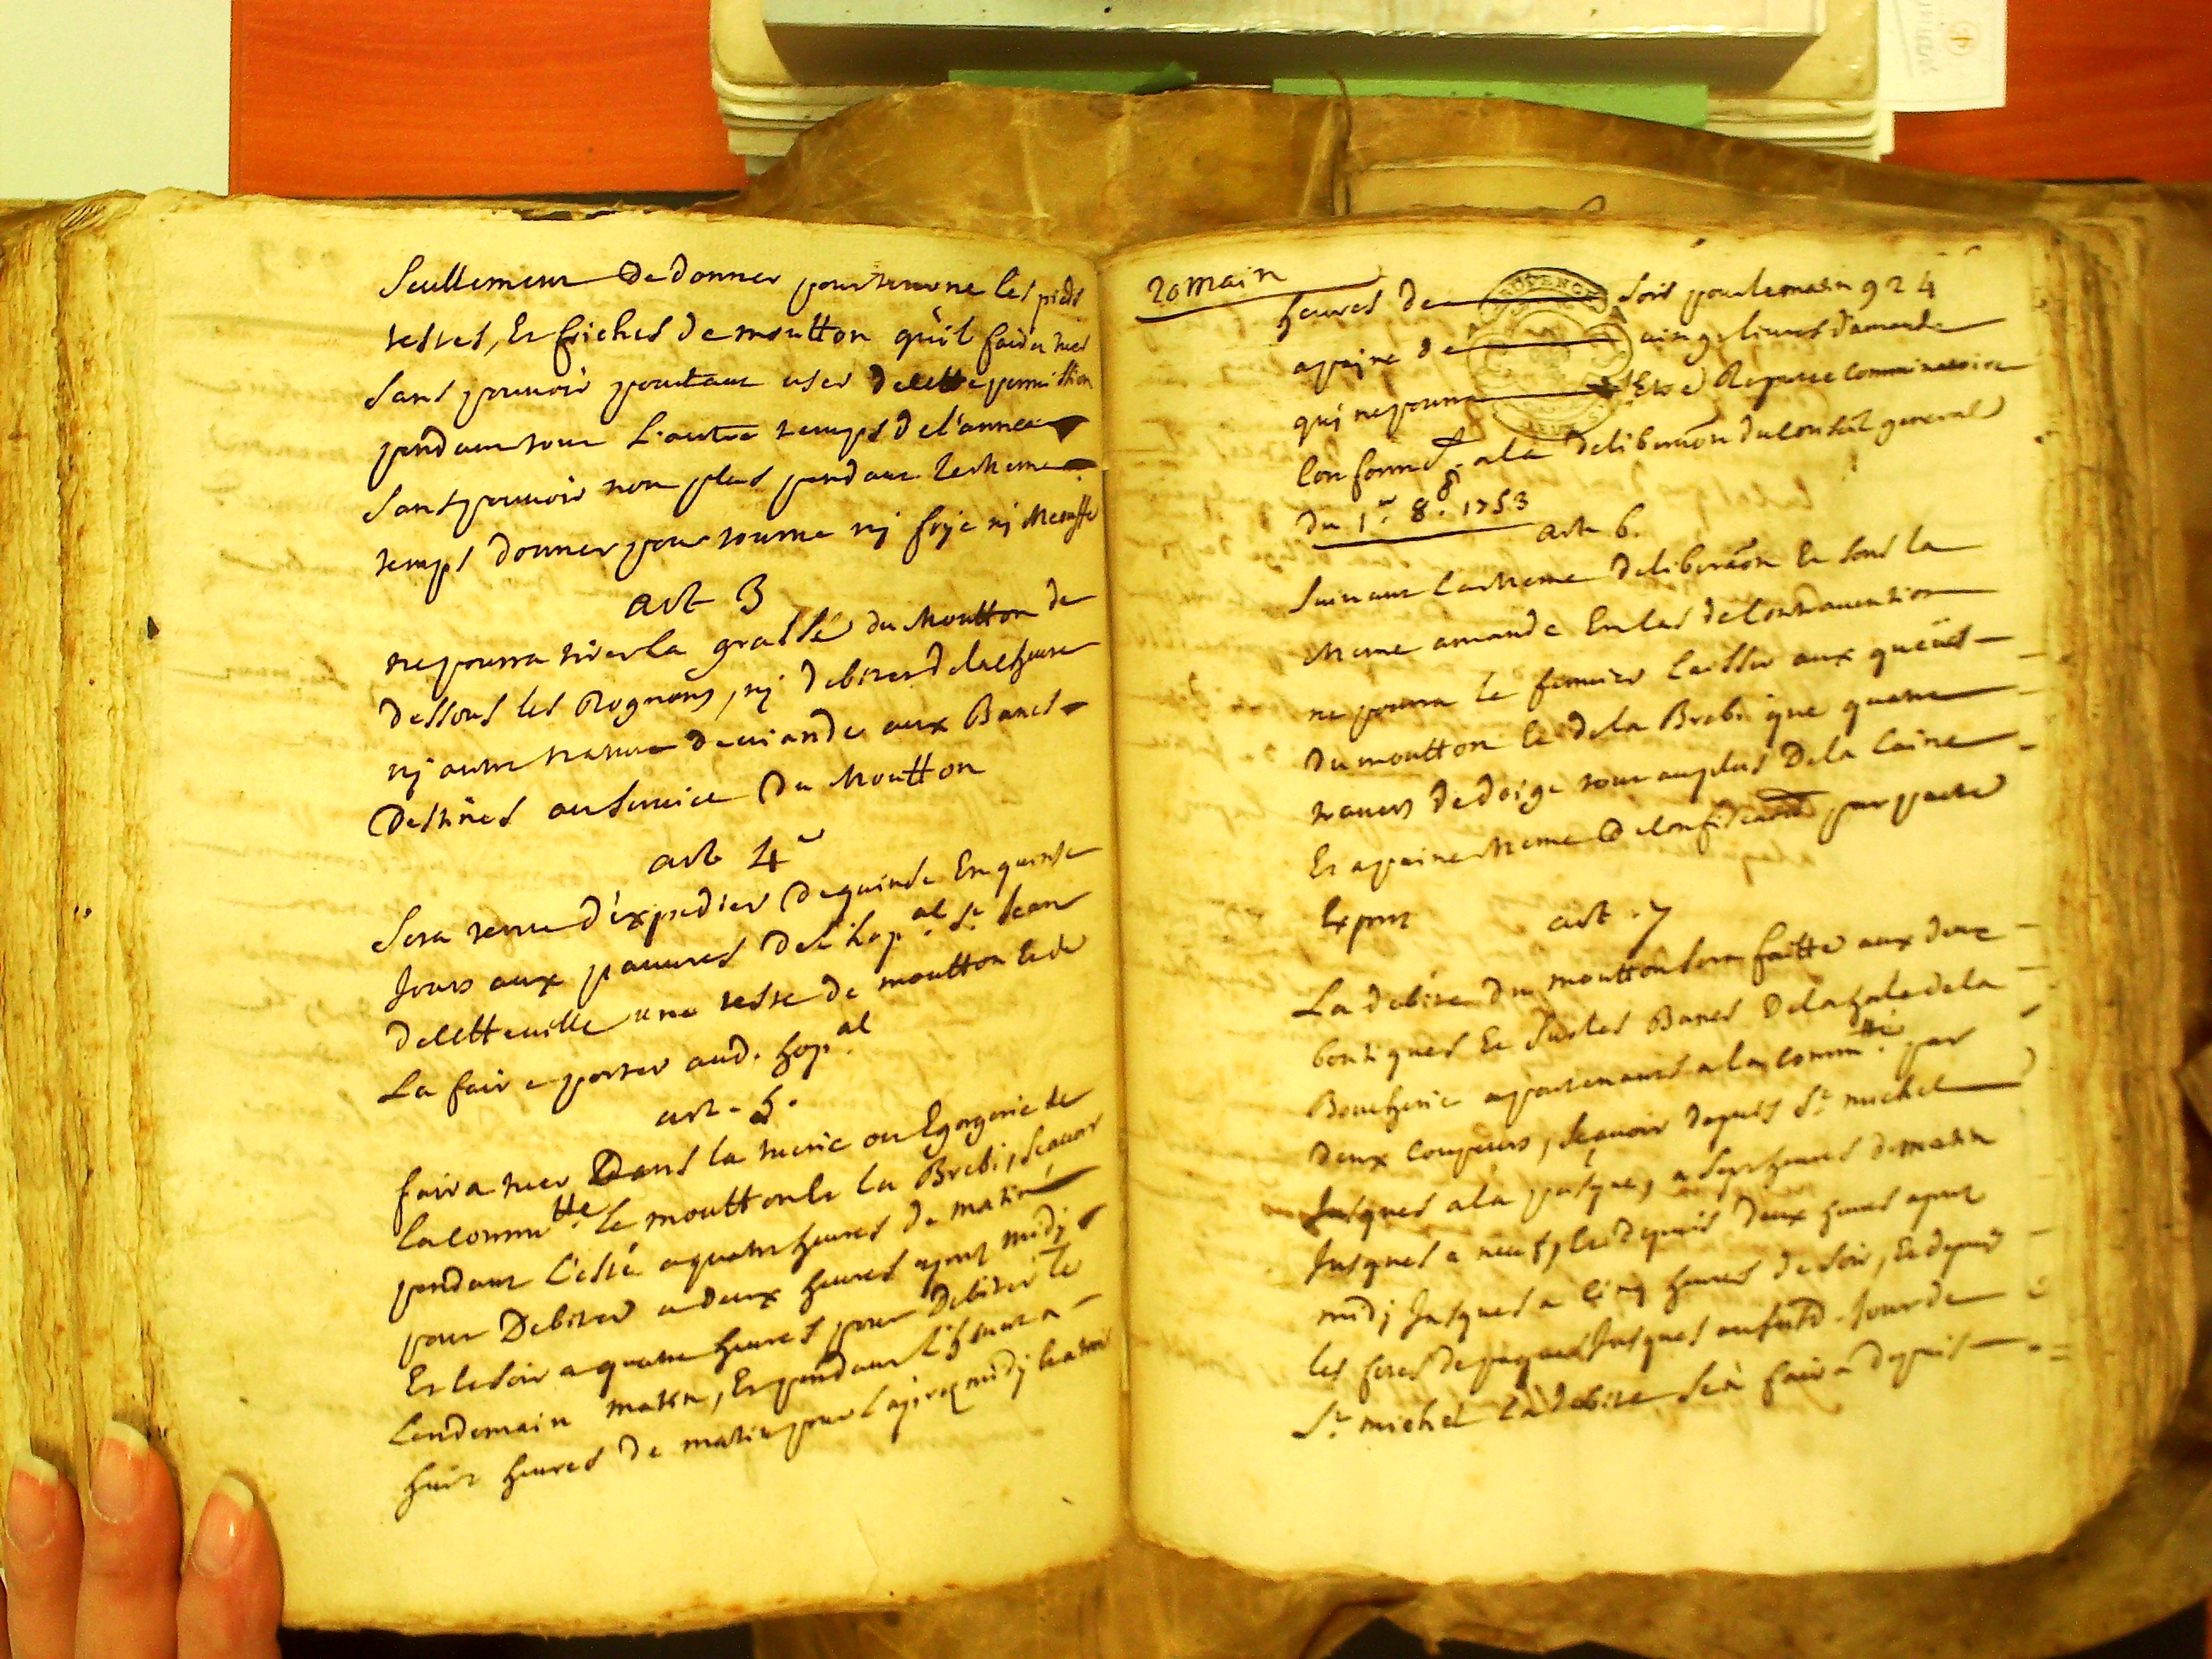 Seullement de donner pour tourne les pieds
testes, Et friches de moutton qu'il faira tuer
sans pouvoir pourtant user de cette permission
pendant tout L'autre temps de l'annee
sans pouvoir non plus pendant le meme
temps donner pour tourne nj foye nj
art 3
ne pourra tirer la graisse du Moutton de
dessous les Rognons, nj debiter de la chevre
nj autre nature de viande aux Bancs
Destinés au service Du Moutton
art 4e
Sera tenu d'éxpedier de quinse En quinse
Jours aux pauvres de l'hop.al St Jean
de cette ville une teste de moutton et de
La faire porter aud. hop.al
art. 5.
faira tuer Dans la tuerie ou Egorgerie de
la commtté le moutton et la Brebi, scavoir
pendant L'esté a quatre heures de matin
pour Debiter a deux heures apres midj
Et le soir a quatre heures pour Debiter le
Lendemain matin, Et pendant l'hiver a
huit heures de matin pour l'apres midj et a trois
20 main
heures de soir pour le matin 924
a paine de cinq livres d'amende
qui ne pourra Etre Reputee comminatoire
Conformt. a la deliberaõn du conseil general
du 1er 8bre 1753
art 6.
Suivant La meme deliberaõn Et sous la
meme amande En cas de contravention
ne pourra le fermier laisser aux queües
du moutton Et de la Brebi que quatre
travers de doigt tout au plus De la laine
Et a paine meme de confiscaõn par pacte
Expres
art. 7
La debite du moutton sera faitte aux deux
boutiques Et sur les Bancs De la hale de la
Boucherie apartenants a la commtté par
Deux coupeurs, scavoir depuis St michel
Jusques a la pasque, a sept heures de matin
Jusques a neuf, Et depuis deux heures apres
midj Jusques a cinq heures de soir, Et depuis
les fetes de paques Jusques ausud. Jour de
St michel la debite se faira depuis